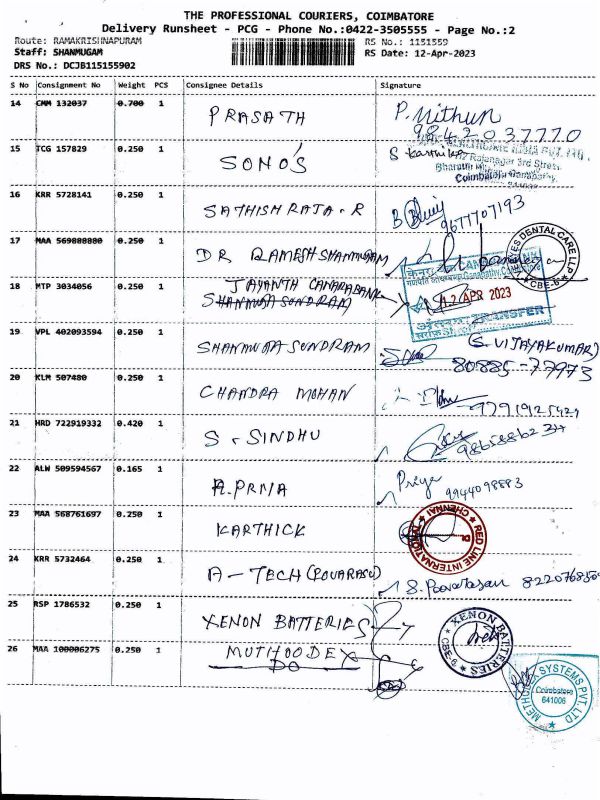 THE PROFESSIONAL COURIERS, COIMBATORE
Delivery Runsheet - PCG - Phone No.:0422-3505555 - Page No.:2
Route: RAMAKRISHNAPURAM RS No.: 1151559
Staff: SHANMUGAM RS Date: 12-Apr-2023
DRS No.: DCJB115155902
S No Consignment No Weight PCS Consignee Details Signature
14 CMM 132037 0.700 1 PRASATH P. Nithun
9842037770
15 TCG 157829 0.250 1 SONO'S S Karthik
Rajanagar 3rd Street
Coimbatore
16 KRR 5728141 0.250 1 SATHISH RAJA . R
9677707193
17 MAA 569888880 0.250 1 DR RAMESH SHANMUGAM
DENTAL CARE LLP
CBE-6
18 MTP 3034056 0.250 1 JAYANTH CANARABANK
SHANMUGA SUNDRAM
12 APR 2023
TRANSFER
19 VPL 402093594 0.250 1 SHANMUGA SUNDRAM (S. VIJAYAKUMAR)
80885-77973
20 KLM 507480 0.250 1 CHANDRA MOHAN
21 HRD 722919332 0.420 1 S . SINDHU
22 ALW 509594567 0.165 1 A. PRIYA Priya
9944098883
23 MAA 568761697 0.250 1 KARTHICK
RED LINE INTERNATIONAL
CHENNAI
24 KRR 5732464 0.250 1 A - TECH (POUARASU)
25 RSP 1786532 0.250 1 XENON BATTERIES
XENON BATTERIES
CBE-6
26 MAA 100006275 0.250 1 MUTHOODEX
DO
SYSTEMS PVT. LTD
Coimbatore
641006